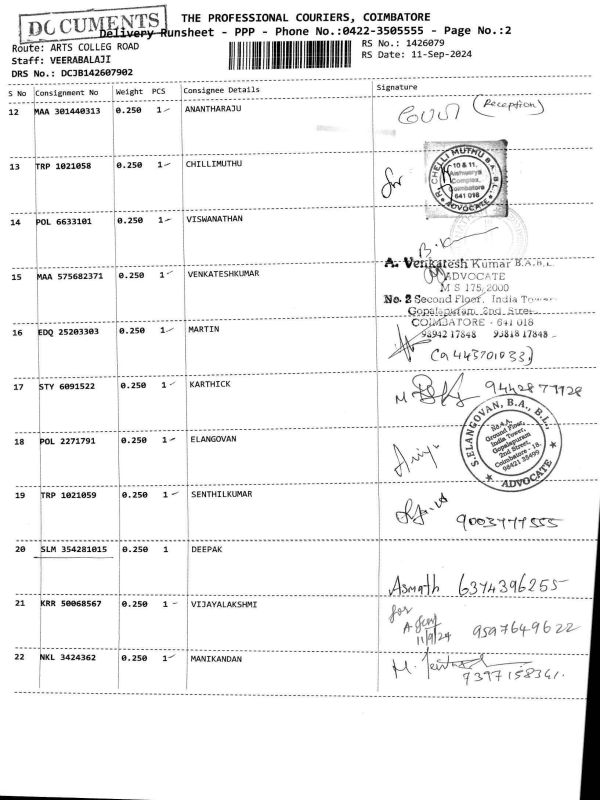 DOCUMENTS
THE PROFESSIONAL COURIERS, COIMBATORE
Delivery Runsheet - PPP - Phone No.:0422-3505555 - Page No.:2
Route: ARTS COLLEG ROAD
RS No.: 1426079
Staff: VEERABALAJI
RS Date: 11-Sep-2024
DRS No.: DCJB142607902
S No Consignment No Weight PCS Consignee Details Signature
12 MAA 301440313 0.250 1 ANANTHARAJU
(Reception)
13 TRP 1021058 0.250 1 CHILLIMUTHU
R. CHELLI MUTHU B.A., B.L.,
10 & 11,
Aishwarya
Complex,
Coimbatore
641 018
ADVOCATE
14 POL 6633101 0.250 1 VISWANATHAN
15 MAA 575682371 0.250 1 VENKATESHKUMAR
A. Venkatesh Kumar B.A.B.L.
ADVOCATE
M S 175/2000
No. 2 Second Floor, India Tower
Gopalapuram, 2nd Street
COIMBATORE - 641 018
98942 17848 93818 17848
16 EDQ 25203303 0.250 1 MARTIN
17 STY 6091522 0.250 1 KARTHICK
18 POL 2271791 0.250 1 ELANGOVAN
S.ELANGOVAN, B.A., B.L.,
No.4,A,
Ground Floor,
India Tower,
Gopalapuram
2nd Street,
Coimbatore - 18.
98421 35499
ADVOCATE
19 TRP 1021059 0.250 1 SENTHILKUMAR
9003777555
20 SLM 354281015 0.250 1 DEEPAK
Asmath 6374396255
21 KRR 50068567 0.250 1 VIJAYALAKSHMI
for
11/9/24 9597649622
22 NKL 3424362 0.250 1 MANIKANDAN
9397158341.